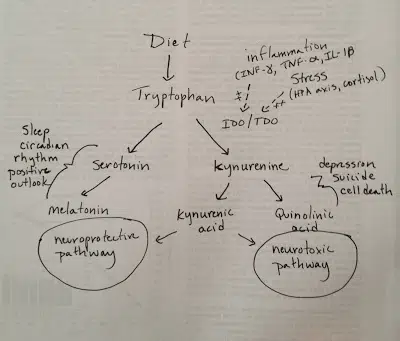 Diet
inflammation
(INF-γ, TNF-α, IL-1β
Tryptophan
Stress
(HPA axis, cortisol)
++
IDO/TDO
Sleep
circadian
rhythm
positive
outlook
Serotonin
Kynurenine
depression
suicide
cell death
Melatonin
Kynurenic
acid
Quinolinic
acid
neuroprotective
pathway
neurotoxic
pathway